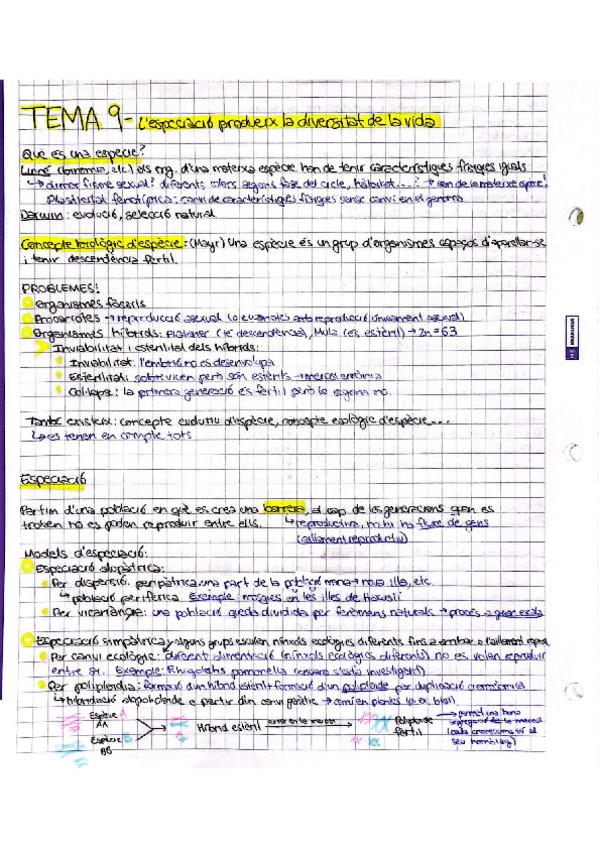 TEMA 9 - L'especiació produeix la diversitat de la vida
Què és una espècie?
Linné (taxonomia, etc) els org. d'una mateixa espècie han de tenir característiques físiques iguals
↳ dimorfisme sexual? diferents colors segons fase del cicle, hàbitat...? → són de la mateixa espècie!
Plasticitat fenotípica: canvi de característiques físiques sense canvi en el genoma
Darwin: evolució, selecció natural
Concepte biològic d'espècie: (Mayr) Una espècie és un grup d'organismes capaços d'aparellar-se
i tenir descendència fèrtil.
PROBLEMES!
Organismes fòssils
Procariotes → reproducció asexual (o eucariotes amb reproducció únicament asexual)
Organismes híbrids: (té descendència), Mula (és estèril) → 2n = 63
Inviabilitat i esterilitat dels híbrids:
Inviabilitat: l'embrió no es desenvolupa
Esterilitat: sobreviuen però són estèrils →
Col·lapse: la primera generació és fèrtil però la segona no.
També existeix: concepte evolutiu d'espècie, concepte ecològic d'espècie...
↳ es tenen en compte tots
Especiació
Partim d'una població en què es crea una barrera, al cap de les generacions quan es
troben no es poden reproduir entre ells. ↳ reproductiva, no hi ha fluxe de gens
(aïllament reproductiu)
Models d'especiació:
Especiació al·lopàtrica:
Per dispersió, peripàtrica: una part de la població marxa → nova illa, etc.
↳ població perifèrica Exemple: mosques en les illes de Hawaii
Per vicariància: una població queda dividida per fenòmens naturals → procés a gran escala
Especiació simpàtrica: alguns grups escullen nínxols ecològics diferents fins a arribar a l'aïllament
Per canvi ecològic: diferent alimentació (nínxols ecològics diferents) no es volen reproduir
entre si. Exemple: Rhagoletis pomonella (encara s'està investigant)
Per poliploïdia: formació d'un híbrid estèril formació d'un poliploide per duplicació cromosòmica
↳ hibridació al·lopoliploide a partir d'un canvi genètic → comú en plantes (p.e. blat)
Espècie A
AA
Espècie B
BB
Híbrid estèril
Poliploide
fèrtil
→ permet una bona
segregació de la meiosi
(cada cromosoma té el
seu homòleg)